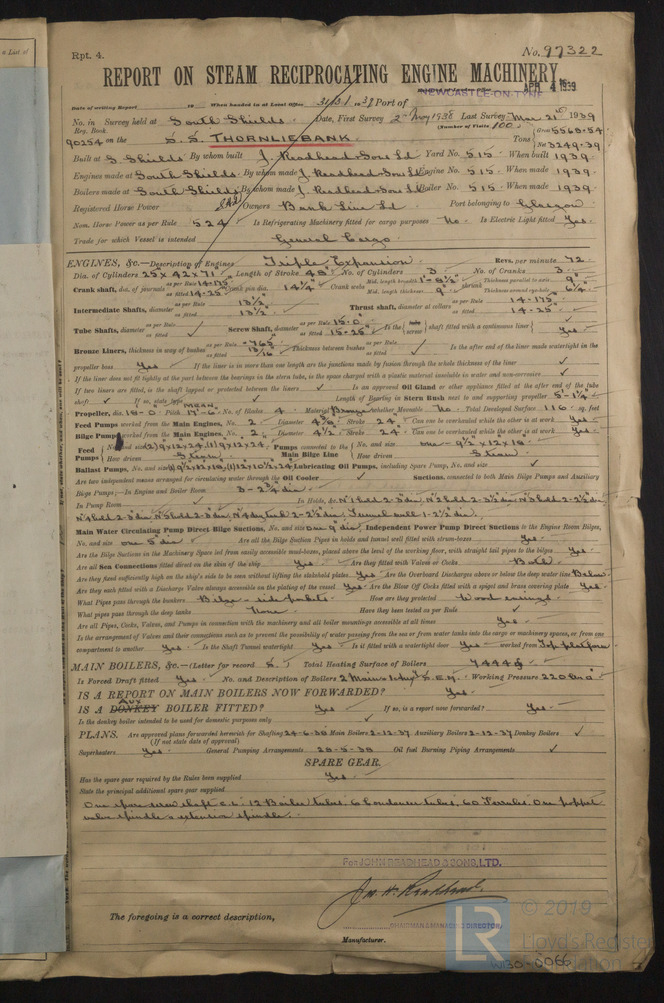 a List of
Rpt. 4.
No. 97322
REPORT ON STEAM RECIPROCATING ENGINE MACHINERY
NEWCASTLE-ON-TYNE APR 4 1939
Date of writing Report 19 When handed in at Local Office 31/3/1939 Port of
No. in Survey held at South Shields Date, First Survey 2nd May 1938 Last Survey Mar 21st 1939
Reg. Book (Number of Visits 100)
90254 on the S.S. THORNLIEBANK Tons Gross 5569.54 Net 3249.39
Built at S. Shields By whom built J. Readhead & Sons Ld Yard No. 515 When built 1939
Engines made at South Shields By whom made J. Readhead & Sons Ld Engine No. 515 When made 1939
Boilers made at South Shields By whom made J. Readhead & Sons Ld Boiler No. 515 When made 1939
Registered Horse Power Owners Bank Line Ld Port belonging to Glasgow
Nom. Horse Power as per Rule 524 Is Refrigerating Machinery fitted for cargo purposes No Is Electric Light fitted Yes
Trade for which Vessel is intended General Cargo
ENGINES, &c.—Description of Engines Triple Expansion Revs. per minute 72
Dia. of Cylinders 25 x 42 x 71 Length of Stroke 48" No. of Cylinders 3 No. of Cranks 3
Crank shaft, dia. of journals as per Rule 14.175 as fitted 14.25 Crank pin dia. 14¼" Crank webs Mid. length breadth 1'-8½" Mid. length thickness 9" shrunk Thickness parallel to axis 9" Thickness around eyehole 6¼"
Intermediate Shafts, diameter as per Rule 13½" as fitted 13½" Thrust shaft, diameter at collars as per Rule 14.175 as fitted 14.25
Tube Shafts, diameter as per Rule as fitted Screw Shaft, diameter as per Rule 15.0" as fitted 15.25" Is the tube screw shaft fitted with a continuous liner Yes
Bronze Liners, thickness in way of bushes as per Rule .765 as fitted 13/16" Thickness between bushes as per Rule as fitted Is the after end of the liner made watertight in the
propeller boss Yes If the liner is in more than one length are the junctions made by fusion through the whole thickness of the liner
If the liner does not fit tightly at the part between the bearings in the stern tube, is the space charged with a plastic material insoluble in water and non-corrosive
If two liners are fitted, is the shaft lapped or protected between the liners Is an approved Oil Gland or other appliance fitted at the after end of the tube
shaft If so, state type Length of Bearing in Stern Bush next to and supporting propeller 5'-1¼"
Propeller, dia. 18'-0 Pitch mean 17'-6" No. of Blades 4 Material Bronze whether Moveable No Total Developed Surface 116 sq. feet
Feed Pumps worked from the Main Engines, No. 2 Diameter 4½" Stroke 24" Can one be overhauled while the other is at work Yes
Bilge Pumps worked from the Main Engines, No. 2 Diameter 4½" Stroke 24" Can one be overhauled while the other is at work Yes
Feed Pumps No. and size How driven Steam Pumps connected to the Main Bilge Line No. and size one 9½"x12"x18" How driven Steam
Ballast Pumps, No. and size Lubricating Oil Pumps, including Spare Pump, No. and size
Are two independent means arranged for circulating water through the Oil Cooler Suctions, connected to both Main Bilge Pumps and Auxiliary
Bilge Pumps;—In Engine and Boiler Room 3 - 2¾" dia
In Pump Room In Holds, &c. No 1 hold 2-3" dia, No 2 hold 2-3½" dia, No 3 hold 2-2½" dia
No 4 hold 2-3" dia, No 5 hold 2-3" dia, Tunnel well 1-2½" dia.
Main Water Circulating Pump Direct Bilge Suctions, No. and size one 9" dia. Independent Power Pump Direct Suctions to the Engine Room Bilges,
No. and size one 5" dia Are all the Bilge Suction Pipes in holds and tunnel well fitted with strum-boxes Yes
Are the Bilge Suctions in the Machinery Space led from easily accessible mud-boxes, placed above the level of the working floor, with straight tail pipes to the bilges Yes
Are all Sea Connections fitted direct on the skin of the ship Yes Are they fitted with Valves or Cocks Both
Are they fixed sufficiently high on the ship's side to be seen without lifting the stokehold plates Yes Are the Overboard Discharges above or below the deep water line Below
Are they each fitted with a Discharge Valve always accessible on the plating of the vessel Yes Are the Blow Off Cocks fitted with a spigot and brass covering plate Yes
What Pipes pass through the bunkers Bilge - side pockets How are they protected Wood casings
What pipes pass through the deep tanks None Have they been tested as per Rule
Are all Pipes, Cocks, Valves, and Pumps in connection with the machinery and all boiler mountings accessible at all times Yes
Is the arrangement of Valves and their connections such as to prevent the possibility of water passing from the sea or from water tanks into the cargo or machinery spaces, or from one
compartment to another Yes Is the Shaft Tunnel watertight Yes Is it fitted with a watertight door Yes worked from Top platform
MAIN BOILERS, &c.—(Letter for record S.) Total Heating Surface of Boilers
Is Forced Draft fitted Yes No. and Description of Boilers Working Pressure 220 lbs
IS A REPORT ON MAIN BOILERS NOW FORWARDED? Yes
IS A DONKEY AUX BOILER FITTED? Yes If so, is a report now forwarded? Yes
Is the donkey boiler intended to be used for domestic purposes only
PLANS. Are approved plans forwarded herewith for Shafting 24-6-38 Main Boilers 2-12-37 Auxiliary Boilers 2-12-37 Donkey Boilers
(If not state date of approval)
Superheaters Yes General Pumping Arrangements 28-5-38 Oil fuel Burning Piping Arrangements
SPARE GEAR.
Has the spare gear required by the Rules been supplied Yes
State the principal additional spare gear supplied
One spare screw shaft c.l. 12 Boiler tubes, 6 Condenser tubes, 60 Ferrules. One poppet
valve spindle & extension spindle.
For JOHN READHEAD & SONS, LTD.
Jas. H. Readhead
CHAIRMAN & MANAGING DIRECTOR
The foregoing is a correct description,
Manufacturer.
© 2019
LR
Lloyd's Register
Foundation
W80-0066